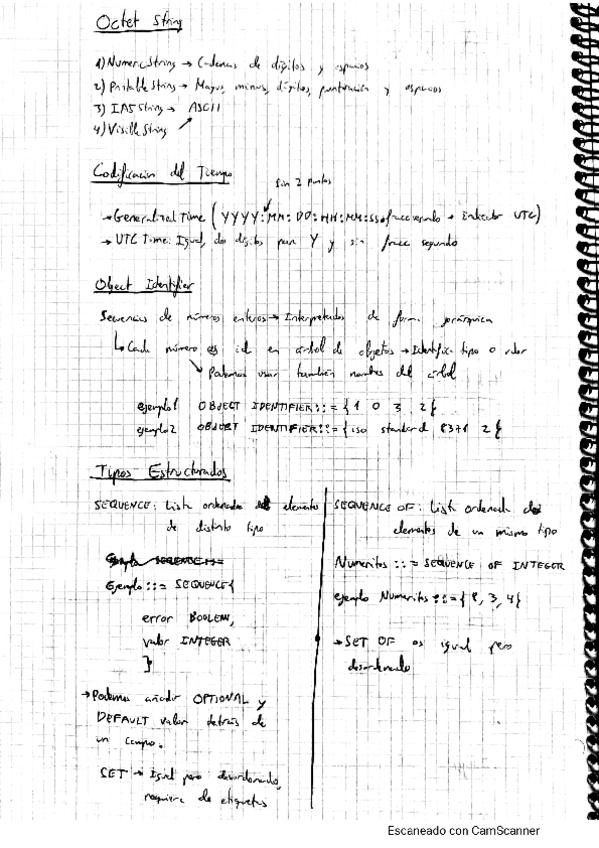 Octet String
1) Numeric String → Cadenas de dígitos y espacios
2) Printable String → Mayus, minus, dígitos, puntuación y espacios
3) IA5 String → ASCII
4) Visible String
Codificacion del Tiempo
Sin 2 puntos
→ Generalized Time (YYYY:MM:DD:HH:MM:SS. + indicador UTC)
→ UTC Time: Igual, dos dígitos para Y y sin fracc segundo
Object Identifier
Secuencias de números enteros → Interpretados de forma jerárquica
↳ Cada número es id en árbol de objetos → Identifica tipo o valor
↘ Podemos usar también nombres del árbol
ejemplo1 OBJECT IDENTIFIER::={1 0 3 2}
ejemplo2 OBJECT IDENTIFIER::={iso standard 8371 2}
Tipos Estructurados
SEQUENCE: Lista ordenada de elementos
de distinto tipo
Ejemplo::= SEQUENCE{
error BOOLEAN,
valor INTEGER
}
→ Podemos añadir OPTIONAL y
DEFAULT valor detrás de
un campo.
SET → Igual pero desordenado,
requiere de etiquetas
SEQUENCE OF: Lista ordenada de
elementos de un mismo tipo
Numeritos ::= SEQUENCE OF INTEGER
ejemplo Numeritos ::={8, 3, 4}
→ SET OF es igual pero
desordenado
Escaneado con CamScanner